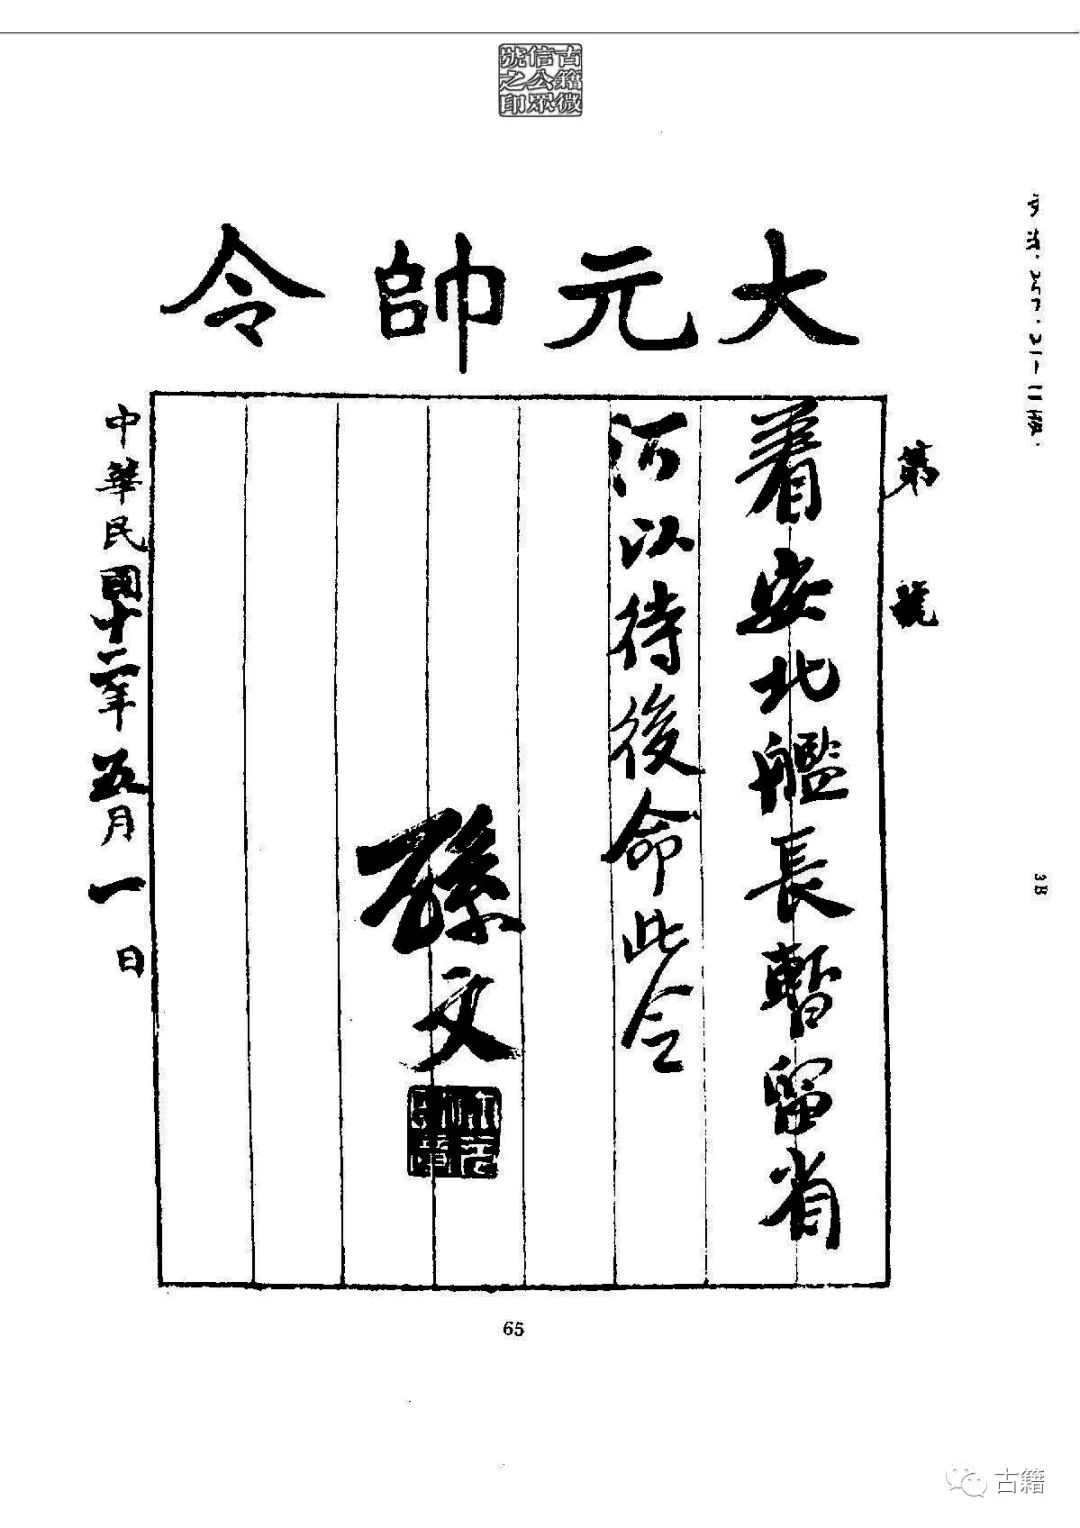 古籍微
信公眾
號之印
大元帥令
第 號
着安北艦長暫留省
河以待後命此令
孫文
中華民國十二年五月一日
65
3B
古籍